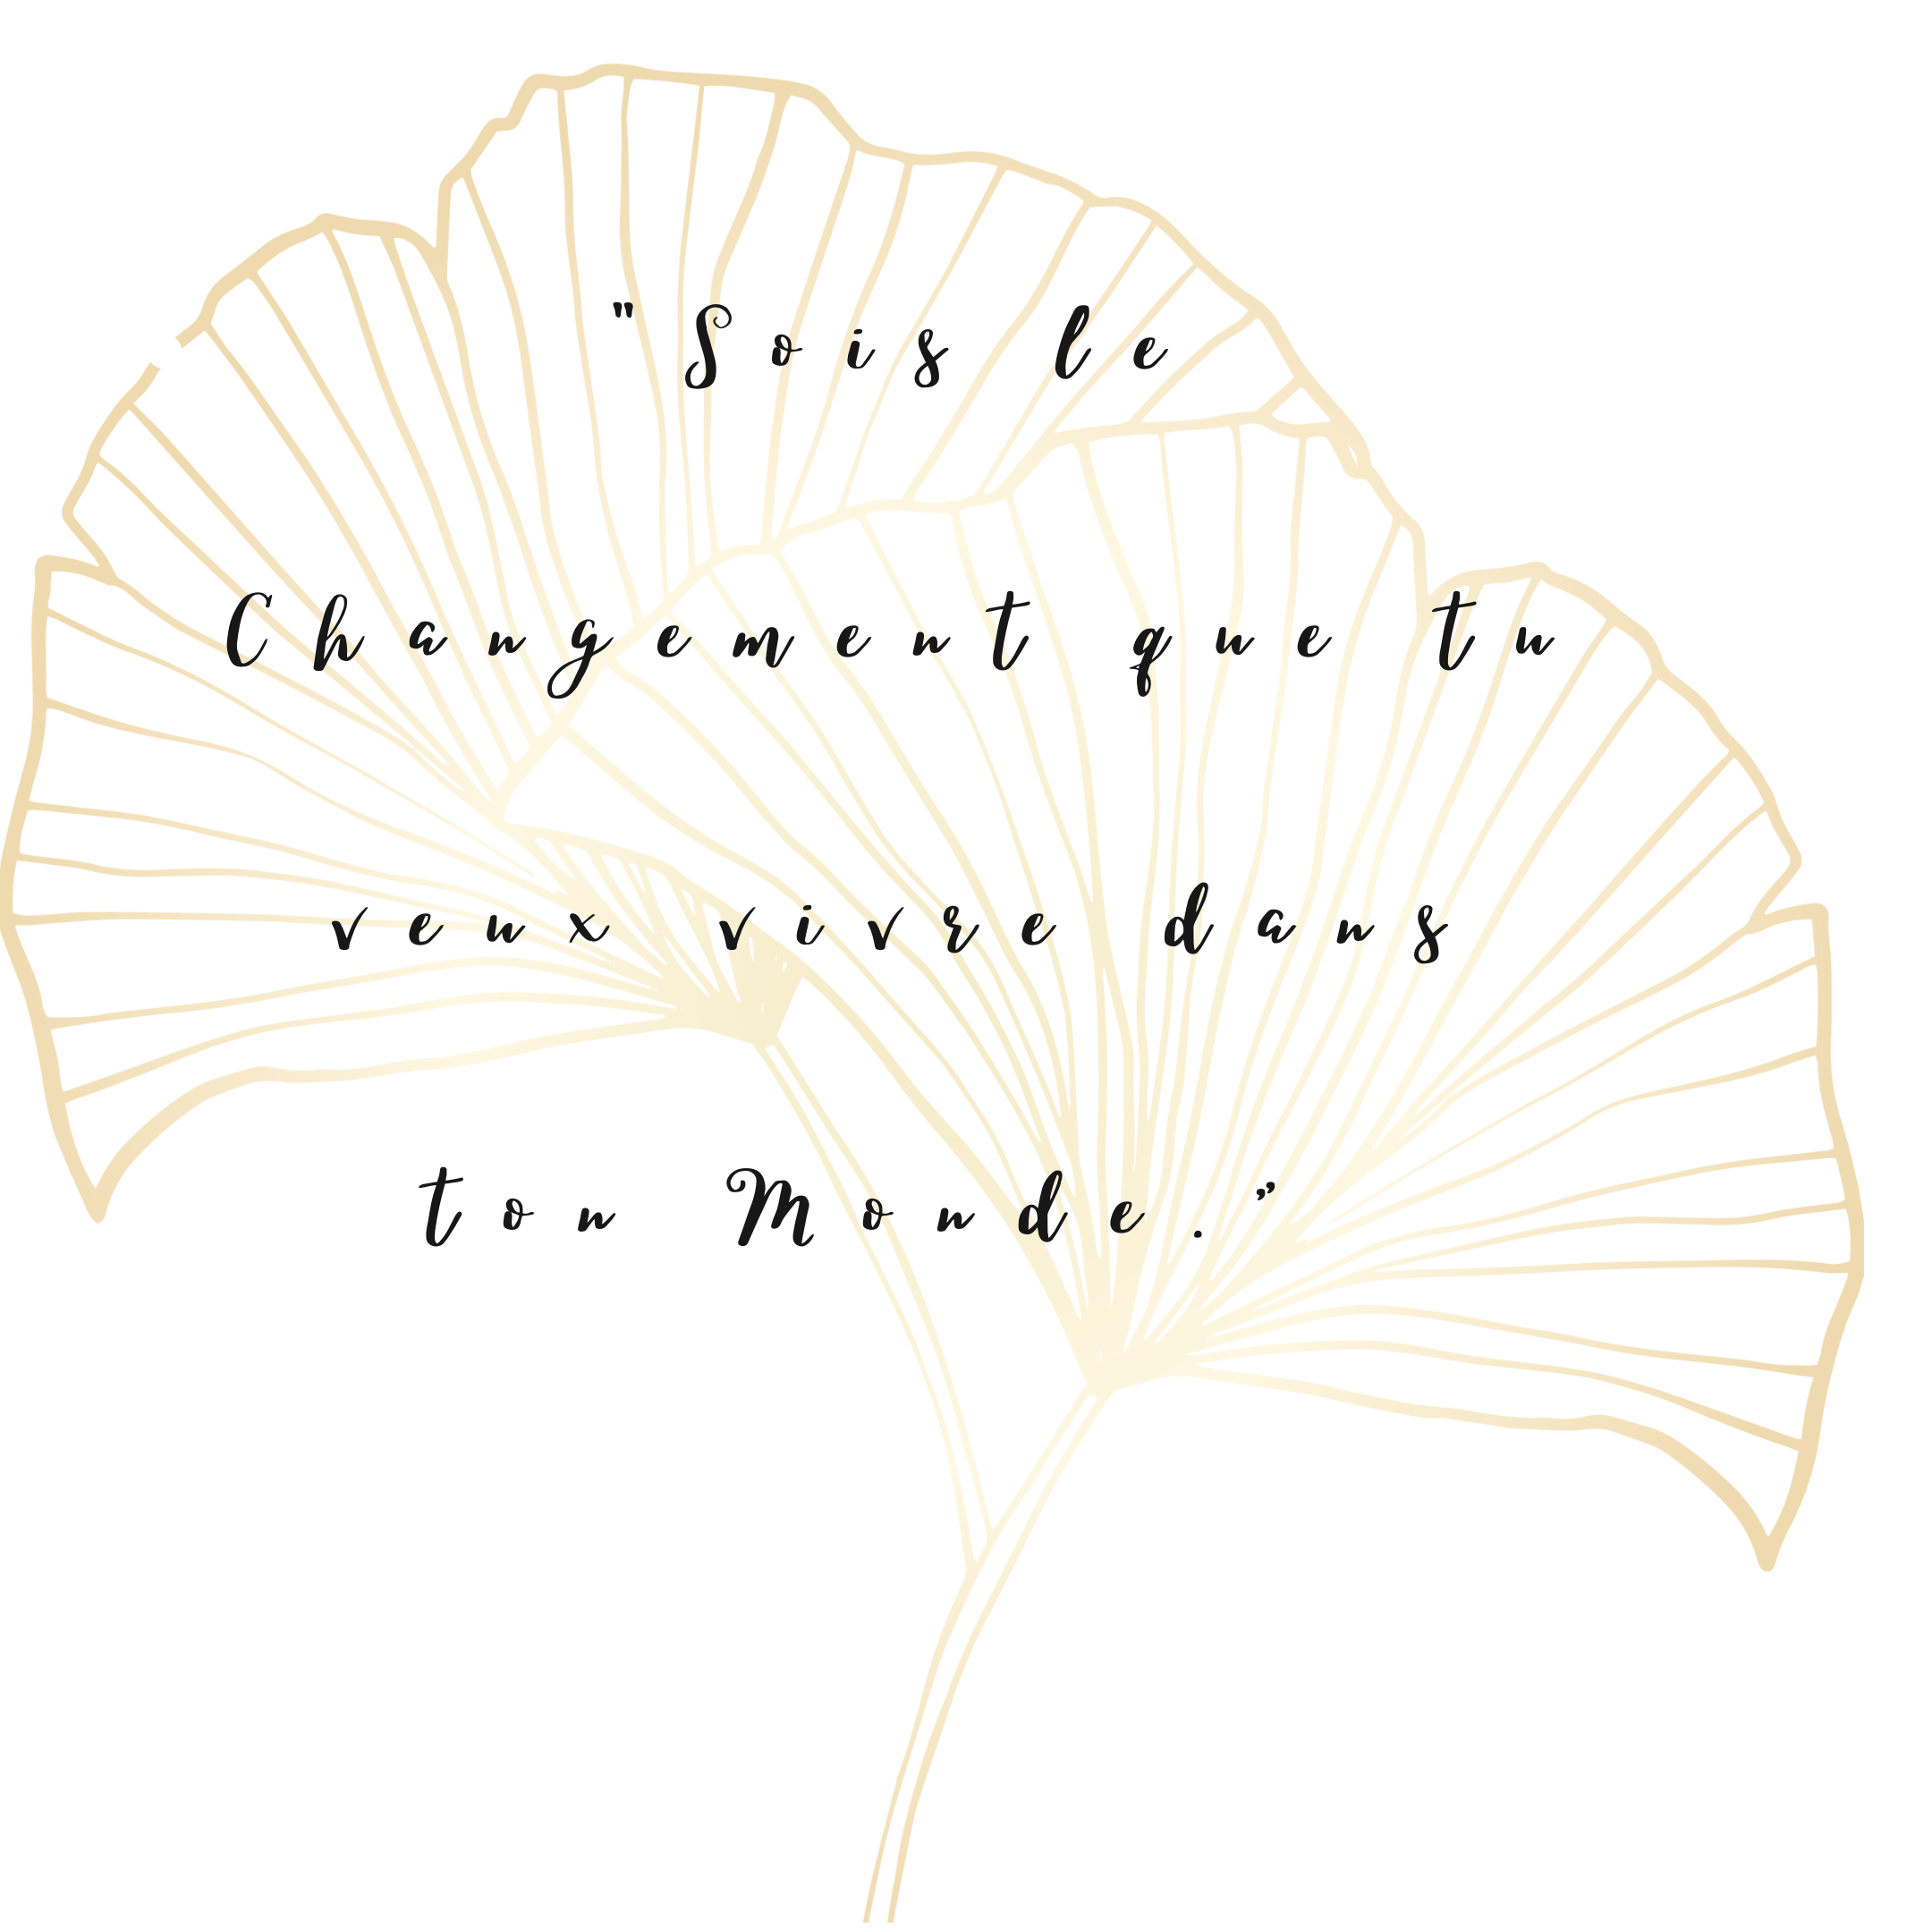 "Sois le
Changement que tu
veux vivre dans
ton Monde.”